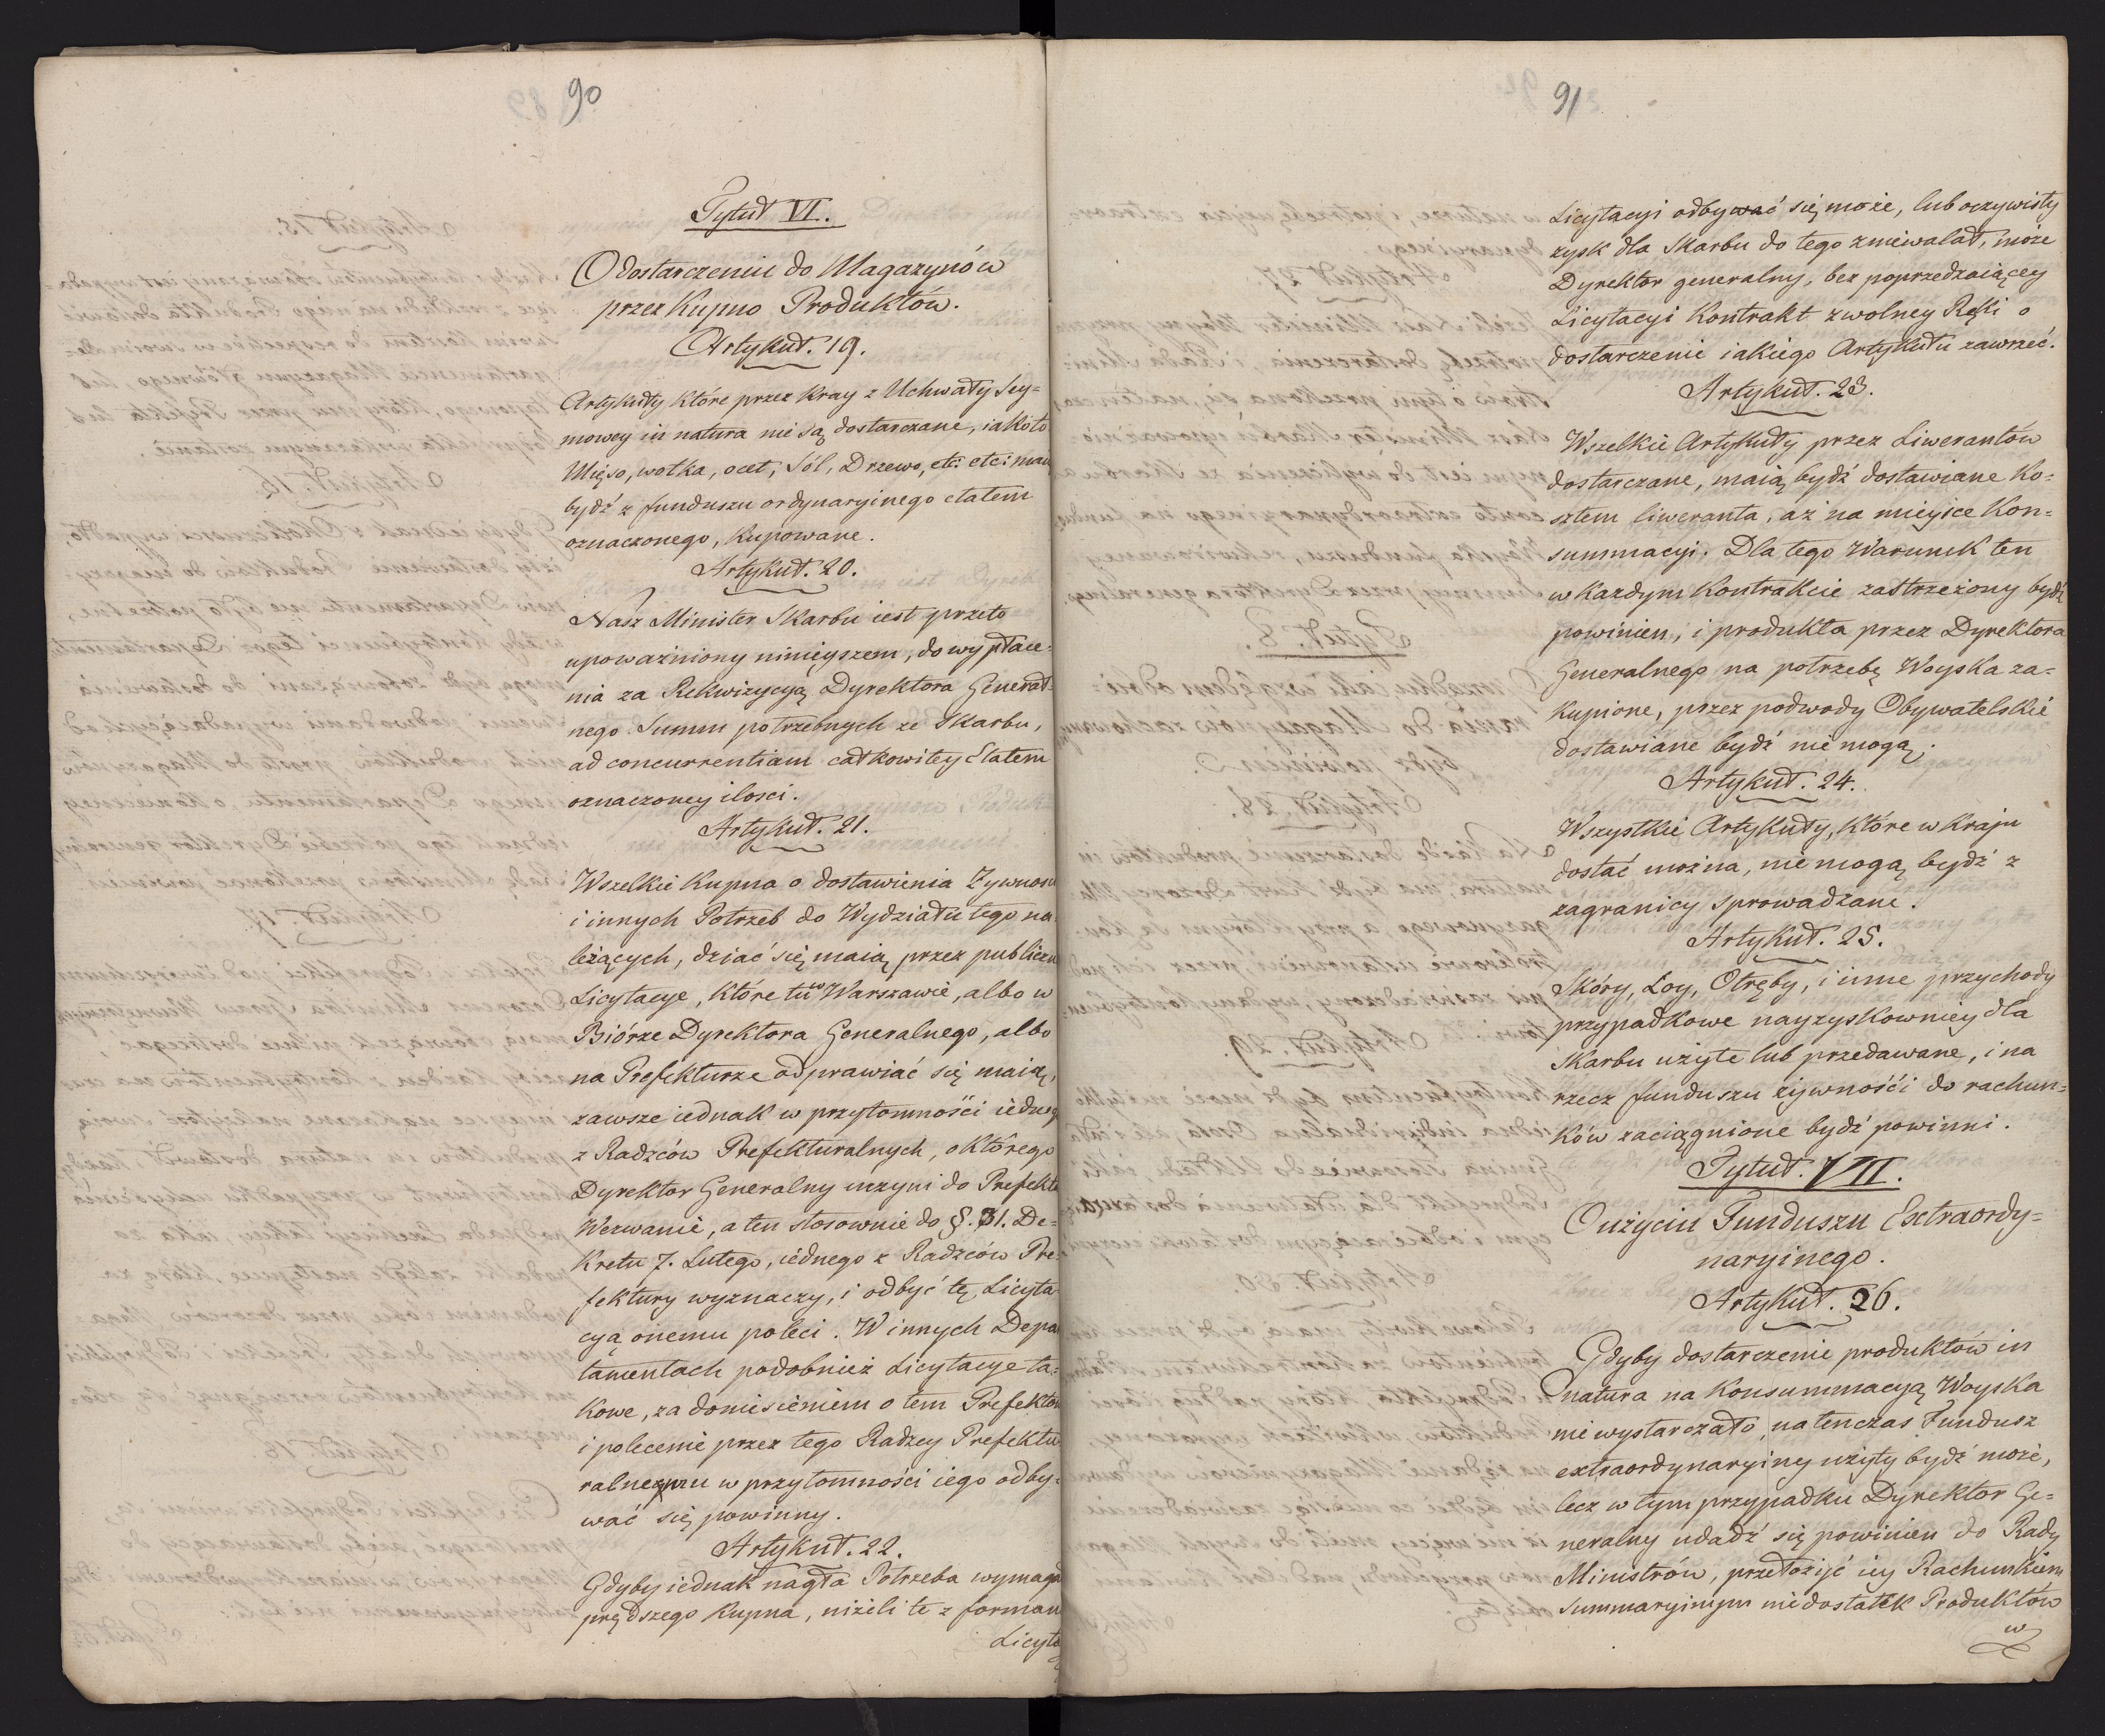 90
Tytuł VI.
O dostarczeniu do Magazynów
przez Kupno Produktów.
Artykuł. 19.
Artykuły które przez Kray z Uchwały Sey=
mowey in natura nie są dostarczane, iako to
Mięso, wotka, ocet, Sól, Drzewo, etc: etc: maią
bydź z funduszu ordynaryinego etatem
oznaczonego, Kupowane.
Artykuł. 20.
Nasz Minister Skarbu iest przeto
upoważniony ninieyszem, do wypłace=
nia za Rekwizycyą Dyrektora Generał=
nego Summ potrzebnych ze Skarbu,
ad concurrentiam całkowitey Etatem
oznaczoney ilosci.
Artykuł. 21.
Wszelkie Kupna o dostawienia Żywnosci
i innych Potrzeb do Wydziału tego na
leżących, dziać się maią przez publiczn
Licytacye, które tu w Warszawie, albo w
Biórze Dyrektora Generalnego, albo
na Prefekturze odprawiać się maią,
zawsze iednak w przytomności iedneg
z Radzców Prefekturalnych, o którego
Dyrektor Generalny uczyni do Prefekta
Wezwanie, a ten stosownie do §. 31. De=
kretu 7. Lutego, iednego z Radzców Pre=
fektury wyznaczy, i odbyć tę Licyta
cyą onemu poleci. W innych Depar
tamentach podobnież Licytacye ta=
kowe, za doniesieniem o tem Prefektow
i polecenie przez tego Radzcy Prefektu
ralnemu w przytomności iego odby=
wać się powinny.
Artykuł. 22.
Gdyby iednak nagła Potrzeba wymaga
prędszego Kupna, niżeli te z forman
Licyta
91
Licytacyi odbywać się może, lub oczywisty
zysk dla Skarbu do tego zniewalał, może
Dyrektor generalny, bez poprzedzaiącey
Licytacyi Kontrakt z wolney Ręki o
dostarczenie iakiego Artykułu zawrzeć.
Artykuł. 23.
Wszelkie Artykuły przez Liwerantów
dostarczane, maią bydź dostawiane Ko=
sztem liweranta, aż na mieysce Kon=
summacyi. Dla tego Warunek ten
w każdym Kontrakcie zastrzeżony bydź
powinien, i produkta przez Dyrektora
Generalnego na potrzebę Woyska za=
kupione, przez podwody Obywatelskie
dostawiane bydź nie mogą.
Artykuł. 24.
Wszystkie Artykuły, które w Kraju
dostać można, nie mogą bydź z
zagranicy sprowadzane.
Artykuł. 25.
Skóry, Łoy, Otręby, i inne przychody
przypadkowe nayzyskowniey dla
Skarbu użyte lub przedawane, i na
rzecz funduszu żywności do rachun=
ków zaciągnione bydź powinni.
Tytuł. VII.
O użyciu Funduszu Extraordy=
naryinego.
Artykuł. 26.
Gdyby dostarczenie produktów in
natura na Konsummacyą Woyska
nie wystarczało, natenczas Fundusz
extraordynaryiny użyty bydź może,
lecz w tym przypadku Dyrektor Ge=
neralny udadź się powinien do Rady
Ministrów, przełożyć iey Rachunkiem
summaryinym niedostatek Produktów
w